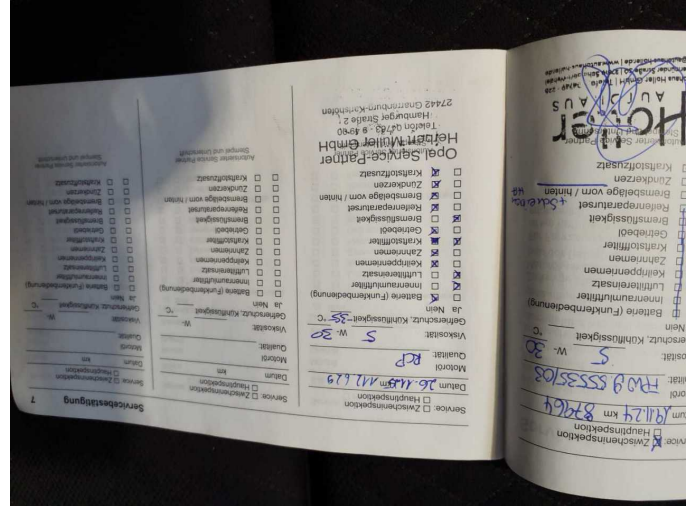 Service: Zwischeninspektion
Hauptinspektion
19.11.24 km 87964
5 W- 30
Kühlflüssigkeit °C
Nein
Batterie (Funkfernbedienung)
Innenraumluftfilter
Luftfiltereinsatz
Keilrippenriemen
Zahnriemen
Kraftstofffilter
Getriebeöl
Bremsflüssigkeit
Reifenreparaturset
Bremsbeläge vorn / hinten
Zündkerzen
Kraftstoffzusatz
AUTOHAUS
Servicebestätigung 7
Service: Zwischeninspektion
Hauptinspektion
Datum km 112 629
Motoröl
Qualität
Viskosität 5 W- 30
Gefrierschutz, Kühlflüssigkeit -35 °C
Ja Nein
Batterie (Funkfernbedienung)
Innenraumluftfilter
Luftfiltereinsatz
Keilrippenriemen
Zahnriemen
Kraftstofffilter
Getriebeöl
Bremsflüssigkeit
Reifenreparaturset
Bremsbeläge vorn / hinten
Zündkerzen
Kraftstoffzusatz
Opel Service-Partner
Müller GmbH
Hamburger Straße 2
27442 Gnarrenburg-Karlshöfen
Service: Zwischeninspektion
Hauptinspektion
Datum km
Motoröl
Qualität
Viskosität W-
Gefrierschutz, Kühlflüssigkeit °C
Ja Nein
Batterie (Funkfernbedienung)
Innenraumluftfilter
Luftfiltereinsatz
Keilrippenriemen
Zahnriemen
Kraftstofffilter
Getriebeöl
Bremsflüssigkeit
Reifenreparaturset
Bremsbeläge vorn / hinten
Zündkerzen
Kraftstoffzusatz
Autorisierter Service Partner
Stempel und Unterschrift
Service: Zwischeninspektion
Hauptinspektion
Datum km
Motoröl
Qualität
Viskosität W-
Gefrierschutz, Kühlflüssigkeit °C
Ja Nein
Batterie (Funkfernbedienung)
Innenraumluftfilter
Luftfiltereinsatz
Keilrippenriemen
Zahnriemen
Kraftstofffilter
Getriebeöl
Bremsflüssigkeit
Reifenreparaturset
Bremsbeläge vorn / hinten
Zündkerzen
Kraftstoffzusatz
Autorisierter Service Partner
Stempel und Unterschrift